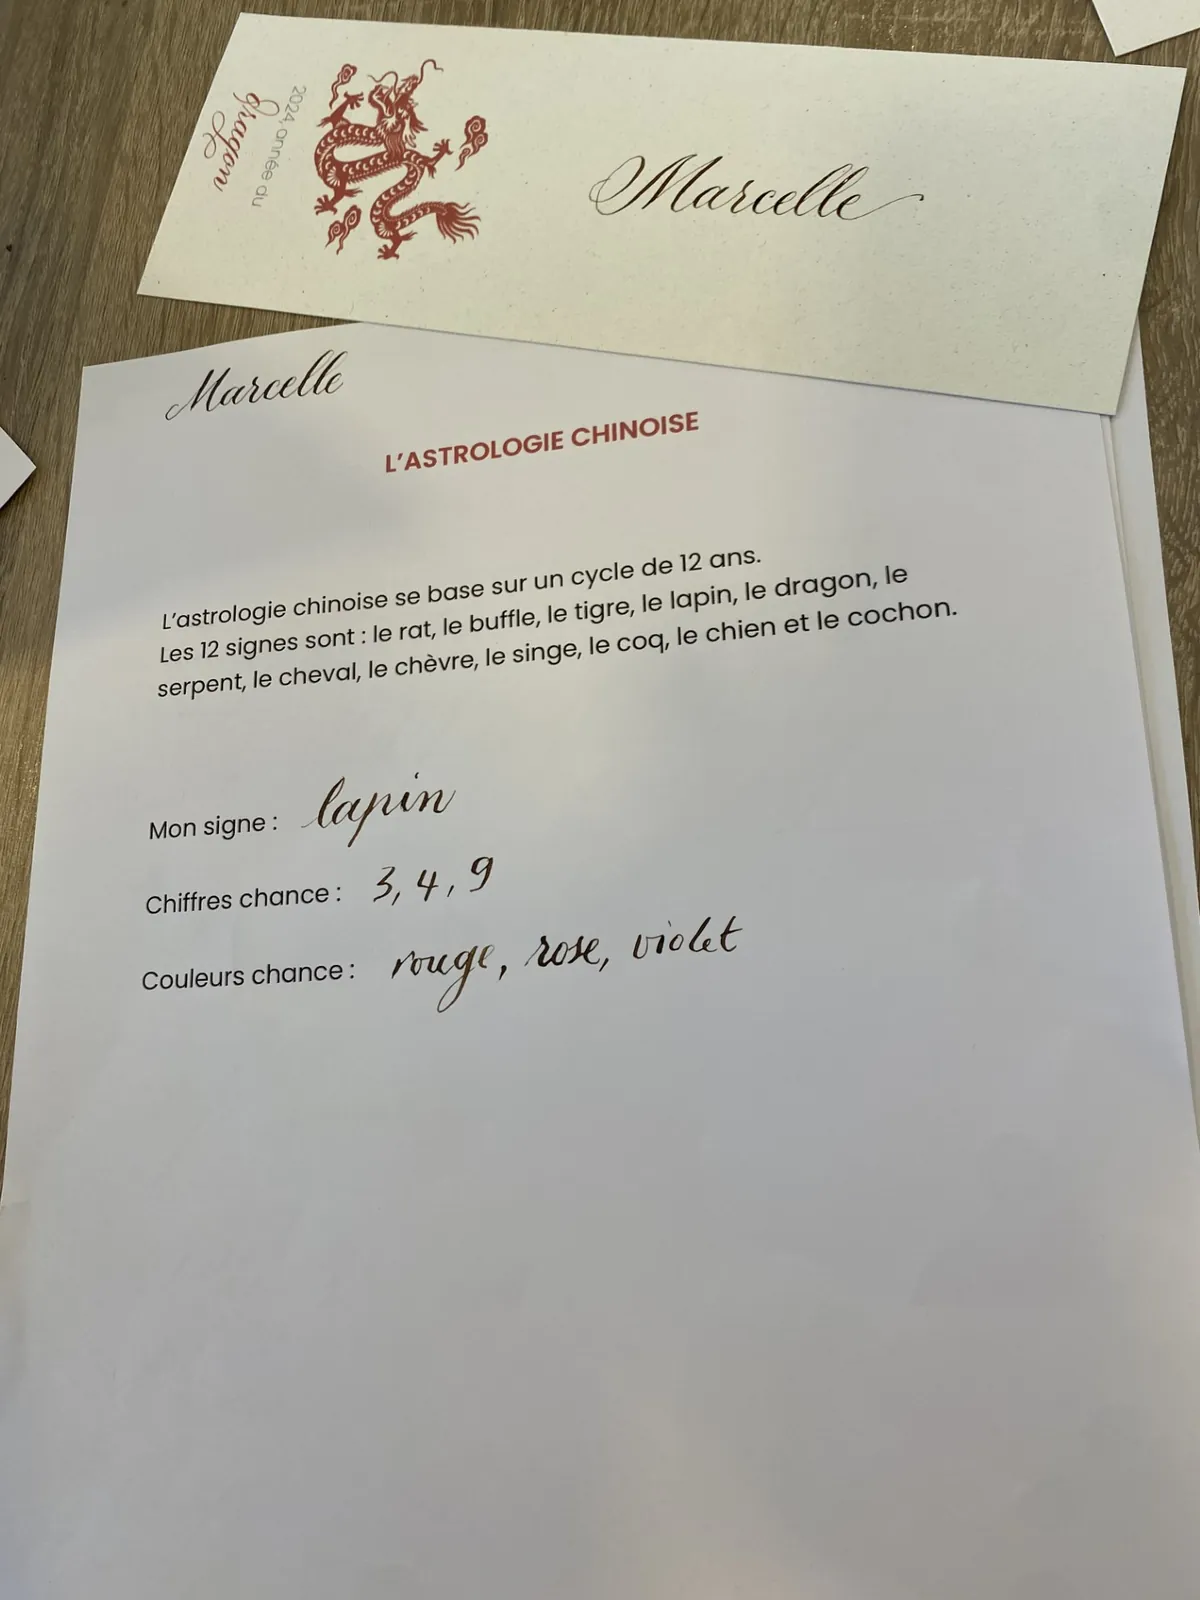 2024, année du
dragon
Marcelle
Marcelle
L'ASTROLOGIE CHINOISE
L'astrologie chinoise se base sur un cycle de 12 ans.
Les 12 signes sont : le rat, le buffle, le tigre, le lapin, le dragon, le
serpent, le cheval, le chèvre, le singe, le coq, le chien et le cochon.
Mon signe : lapin
Chiffres chance : 3, 4, 9
Couleurs chance : rouge, rose, violet